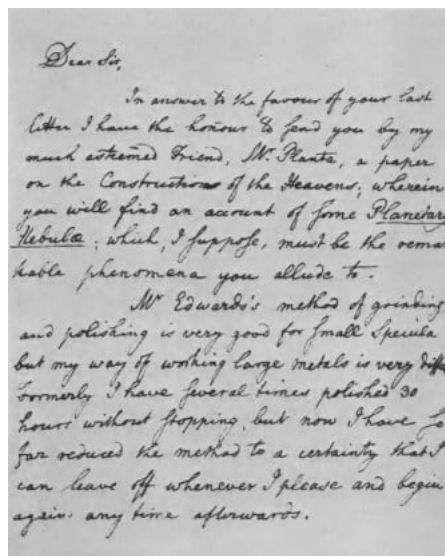 Dear Sir,
In answer to the favour of your last
letter I have the honour to send you by my
much esteemed Friend, Mr. Planta, a paper
on the Construction of the Heavens; wherein
you will find an account of some Planetary
Nebulæ; which, I suppose, must be the remar
kable phenomena you allude to.
Mr Edwards's method of grinding
and polishing is very good for small Specula
but my way of working large metals is very diffe
formerly I have several times polished 30
hours without stopping, but now I have so
far reduced the method to a certainty that I
can leave off whenever I please and begin
again any time afterwards.